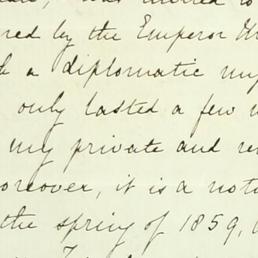 red by the Emperor
a diplomatic
only lasted a few
my private and
oreover, it is a
the spring of 1859,